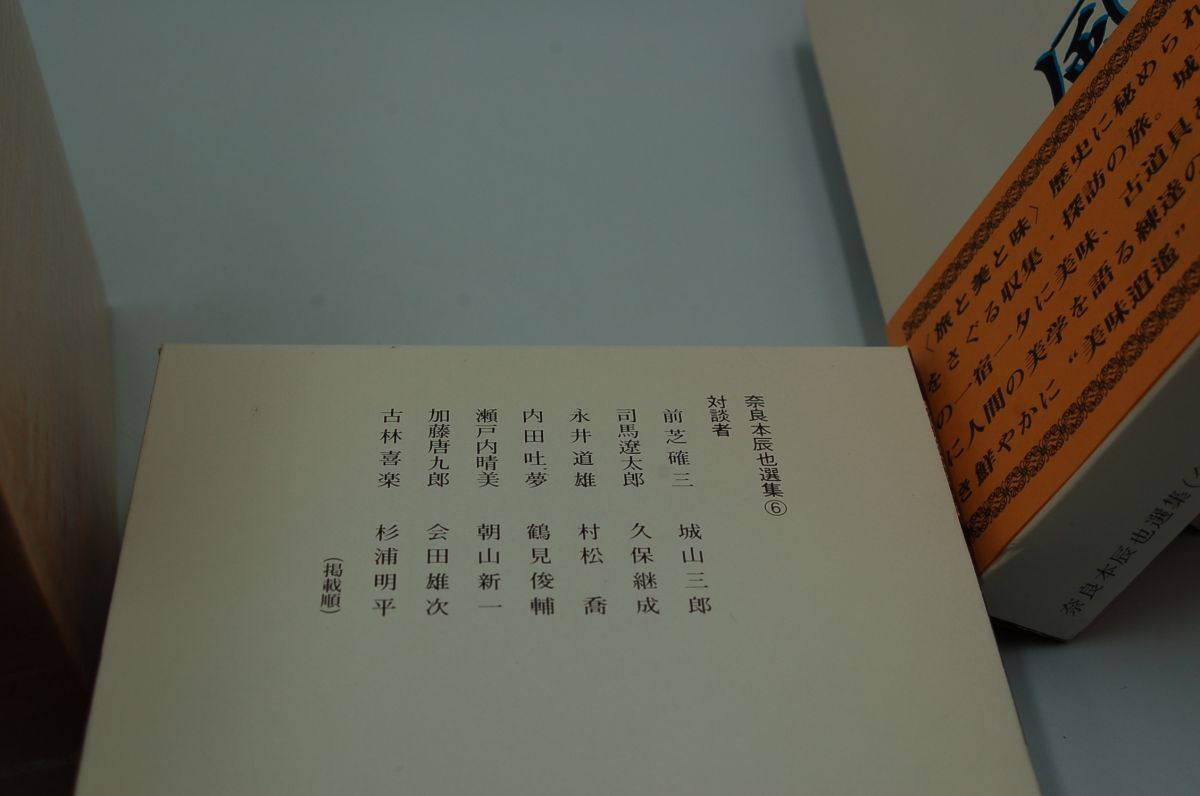 奈良本辰也選集⑥
対談者
前芝確三 城山三郎
司馬遼太郎 久保継成
永井道雄 村松喬
内田吐夢 鶴見俊輔
瀬戸内晴美 朝山新一
加藤唐九郎 会田雄次
古林喜楽 杉浦明平
(掲載順)
〈旅と美と味〉歴史に秘められ
をさぐる収集・探訪の旅。城
の一宿一夕に美味、古道具
に人間の美学を語る練達の
き鮮やかに“美味逍遙”
奈良本辰也選集(